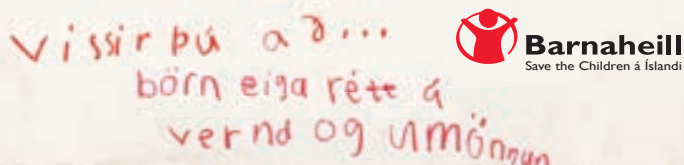 Vissir þú að...
börn eiga rétt á
vernd og umönnun
Barnaheill
Save the Children á Íslandi